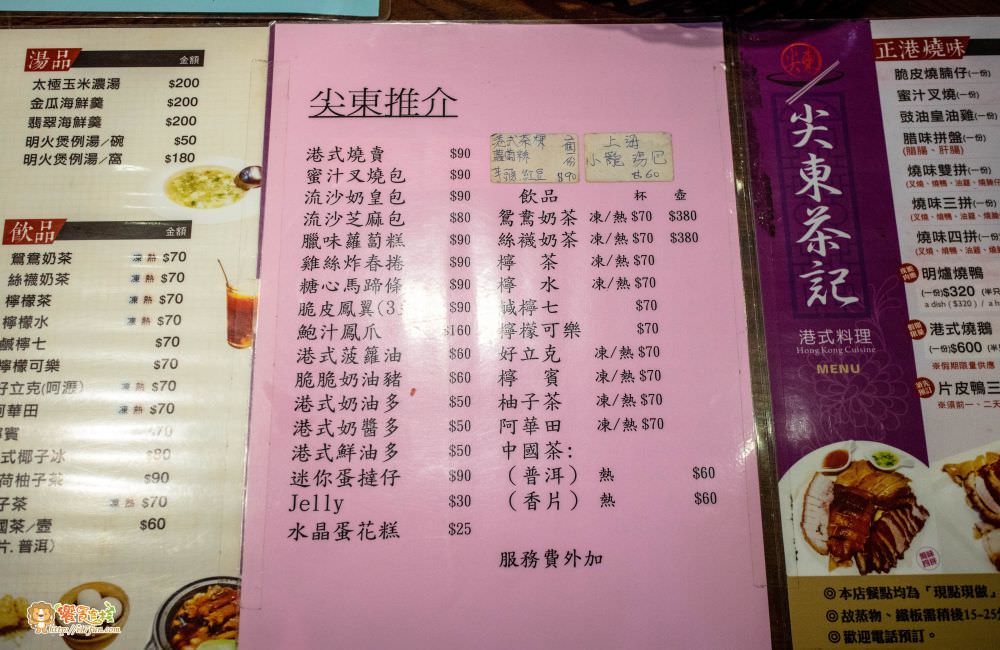 湯品 金額
太極玉米濃湯 $200
金瓜海鮮羹 $200
翡翠海鮮羹 $200
明火煲例湯/碗 $50
明火煲例湯/窩 $180
飲品 金額
鴛鴦奶茶 凍 熱 $70
絲襪奶茶 凍 熱 $70
檸檬茶 凍 熱 $70
檸檬水 凍 熱 $70
鹹檸七 $70
檸檬可樂 $70
好立克(呵瀝) 凍 熱 $70
阿華田 凍 熱 $70
檸賓 $70
式椰子冰 $80
荷柚子茶 $90
子茶 凍 熱 $70
國茶/壺 $60
片.普洱)
尖東推介
港式燒賣 $90
蜜汁叉燒包 $90
流沙奶皇包 $90
流沙芝麻包 $80
臘味蘿蔔糕 $90
雞絲炸春捲 $90
糖心馬蹄條 $90
脆皮鳳翼(3 $90
鮑汁鳳爪 $160
港式菠蘿油 $60
脆脆奶油豬 $60
港式奶油多 $50
港式奶醬多 $50
港式鮮油多 $50
迷你蛋撻仔 $90
Jelly $30
水晶蛋花糕 $25
港式茶粿
芋頭 紅豆 $90
上海
小籠湯包
$60
飲品 杯 壺
鴛鴦奶茶 凍/熱 $70 $380
絲襪奶茶 凍/熱 $70 $380
檸 茶 凍/熱 $70
檸 水 凍/熱 $70
鹹檸七 $70
檸檬可樂 $70
好立克 凍/熱 $70
檸 賓 凍/熱 $70
柚子茶 凍/熱 $70
阿華田 凍/熱 $70
中國茶:
(普洱) 熱 $60
(香片) 熱 $60
服務費外加
尖東
尖東茶記
港式料理
Hong Kong Cuisine
MENU
正港燒味
脆皮燒腩仔(一份)
蜜汁叉燒(一份)
豉油皇油雞(一份)
腊味拼盤(一份)
(腊腸、肝腸)
燒味雙拼(一份)
(叉燒、燒鴨、油雞、燒腩仔
燒味三拼(一份)
(叉燒、燒鴨、油雞、燒
燒味四拼(一份)
(叉燒、燒鴨、油雞、燒
明爐燒鴨
(一份)$320 (半只
a dish ( $320 ) / a h
港式燒鵝
(一份)$600 (半
※假期限量供應
預先預訂
片皮鴨三
※須前一、二天
燒味四拼
◎本店餐點均為「現點現做」
◎故蒸物、鐵板需稍後15~25
◎歡迎電話預訂。